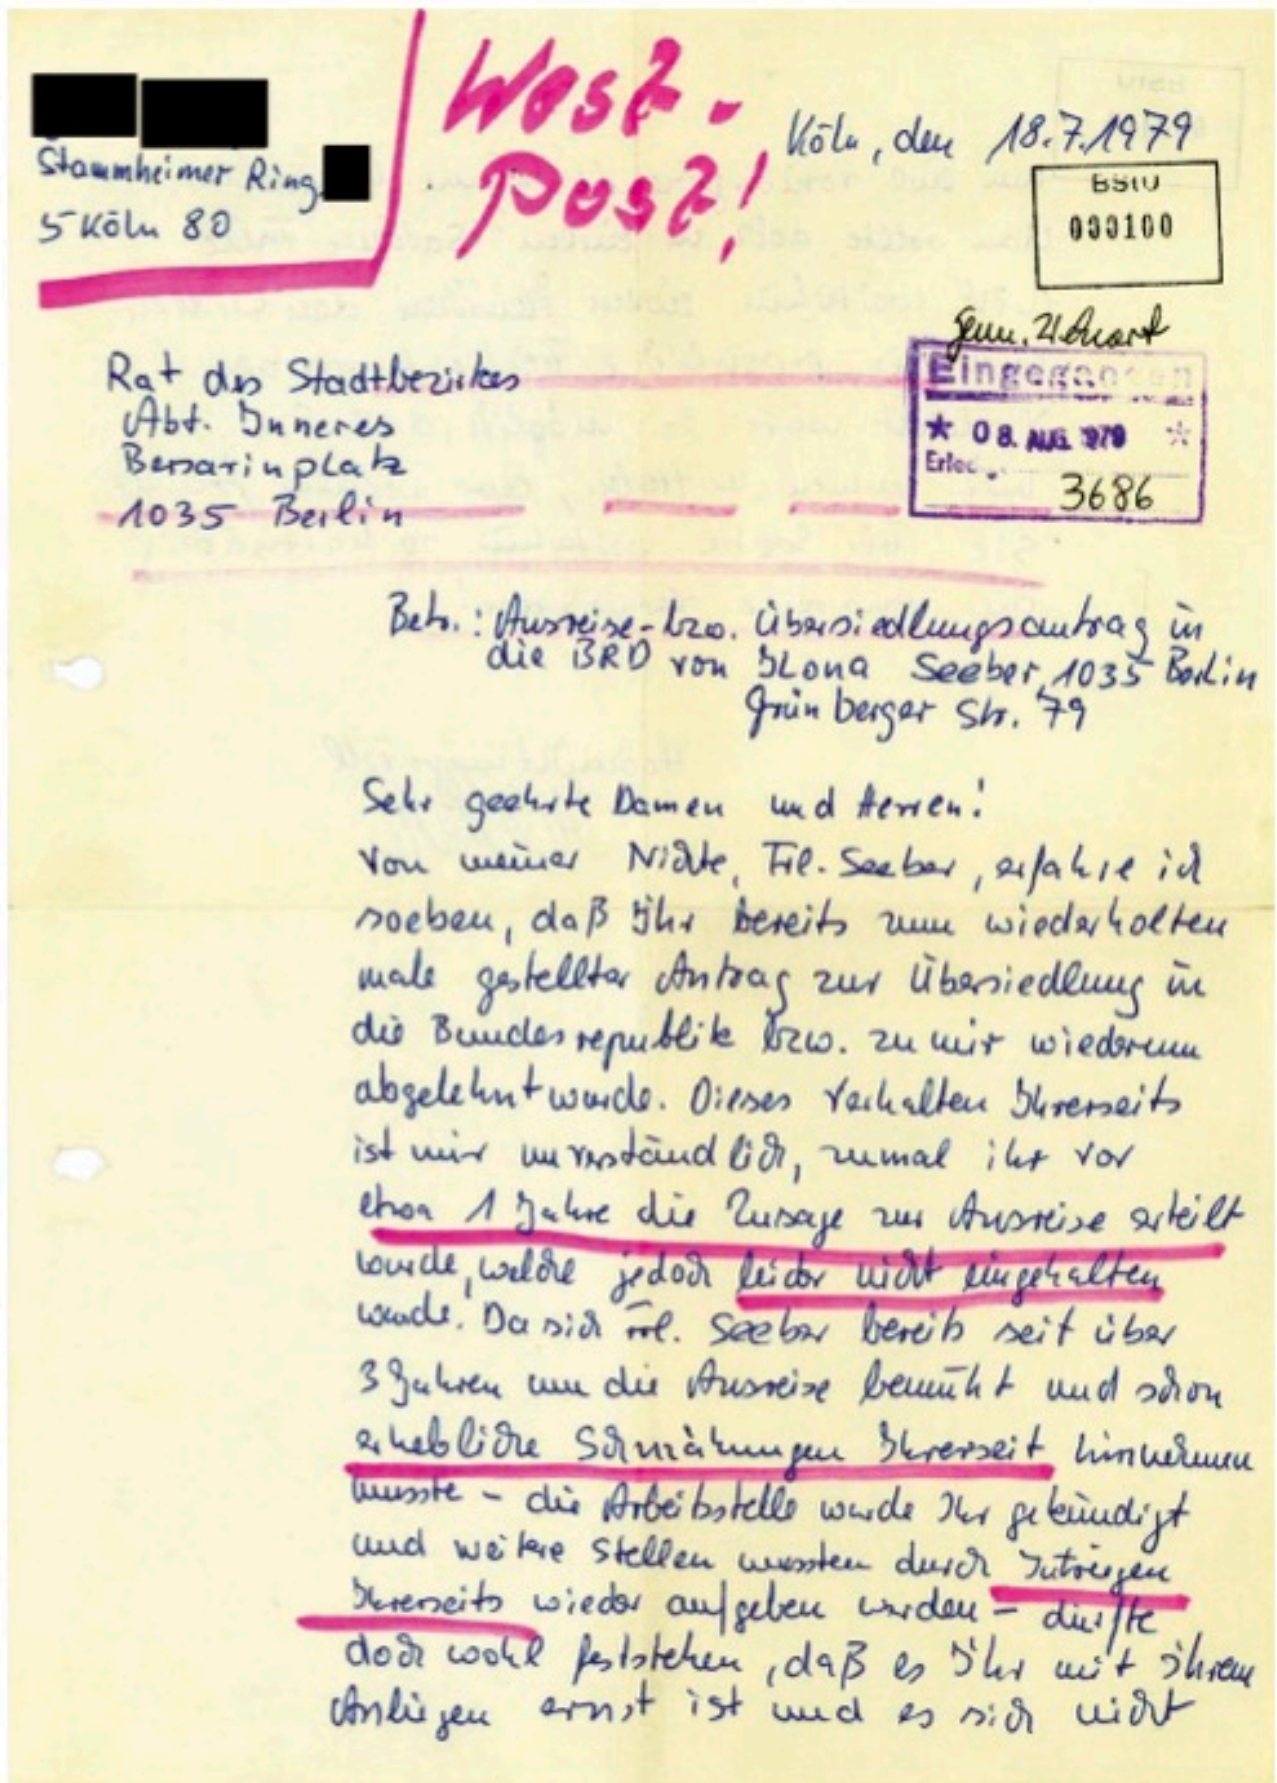 West-
Post!
Köln, den 18.7.1979
Stammheimer Ring
5 Köln 80
BStU
000100
Gen.
Eingegangen
* 08. AUG. 1979 *
Erled.
3686
Rat des Stadtbezirkes
Abt. Inneres
Bersarinplatz
1035 Berlin
Betr.: Ausreise- bzw. Übersiedlungsantrag in
die BRD von Ilona Seeber, 1035 Berlin
Grünberger Str. 79
Sehr geehrte Damen und Herren!
Von meiner Nichte, Frl. Seeber, erfahre ich
soeben, daß Ihr bereits zum wiederholten
male gestellter Antrag zur Übersiedlung in
die Bundesrepublik bzw. zu mir wiederum
abgelehnt wurde. Dieses Verhalten Ihrerseits
ist mir unverständlich, zumal ihr vor
etwa 1 Jahre die Zusage zur Ausreise erteilt
wurde, welche jedoch leider nicht eingehalten
wurde. Da sich Frl. Seeber bereits seit über
3 Jahren um die Ausreise bemüht und schon
erhebliche Schmähungen Ihrerseit hinnehmen
musste – die Arbeitsstelle wurde Ihr gekündigt
und weitere Stellen mussten durch Intriegen
Ihrerseits wieder aufgeben werden – dürfte
doch wohl feststehen, daß es Ihr mit ihrem
Anliegen ernst ist und es sich nicht